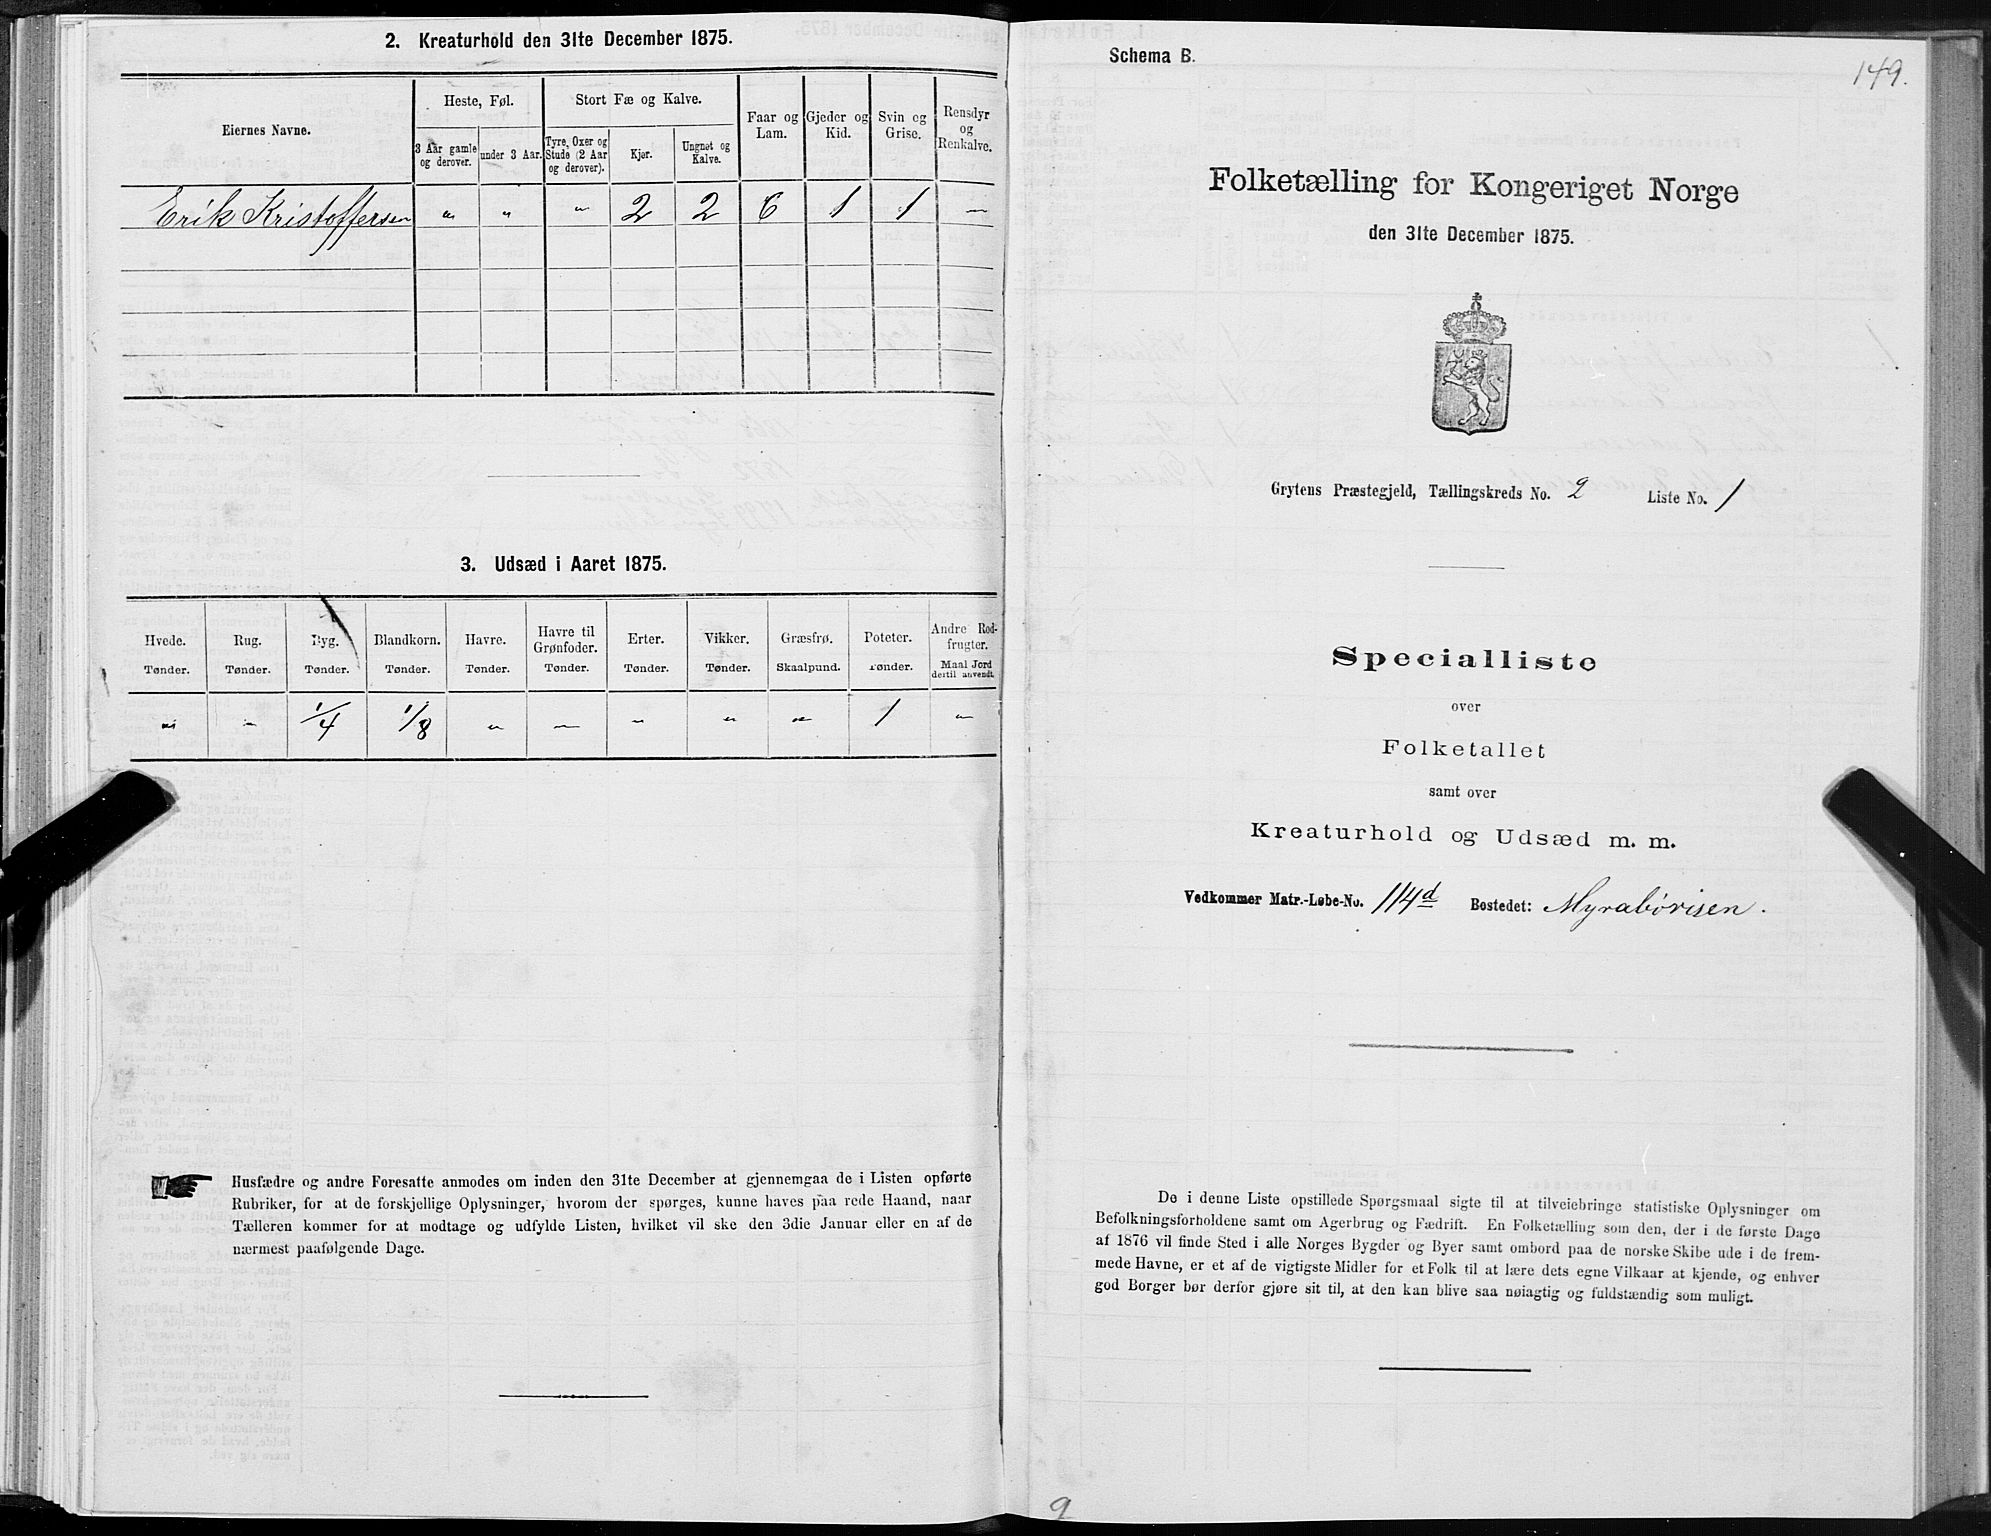 2. Kreaturhold den 31te December 1875.
Eiernes Navne.
Heste, Føl.
Stort Fæ og Kalve.
Faar og Lam.
Gjeder og Kid.
Svin og Grise.
Rensdyr og Renkalve.
3 Aar gamle og derover.
under 3 Aar.
Tyre, Oxer og Stude (2 Aar og derover).
Kjør.
Ungnøt og Kalve.
Erik Kristoffersen " " " 2 2 6 1 1 "
3. Udsæd i Aaret 1875.
Hvede. Rug. Byg. Blandkorn. Havre. Havre til Grønfoder. Erter. Vikker. Græsfrø. Poteter. Andre Rodfrugter.
Tønder. Tønder. Tønder. Tønder. Tønder. Tønder. Tønder. Tønder. Skaalpund. Tønder. Maal Jord dertil anvendt.
" " 1/4 1/8 " " " " " 1 "
Husfædre og andre Foresatte anmodes om inden den 31te December at gjennemgaa de i Listen opførte
Rubriker, for at de forskjellige Oplysninger, hvorom der spørges, kunne haves paa rede Haand, naar
Tælleren kommer for at modtage og udfylde Listen, hvilket vil ske den 3die Januar eller en af de
nærmest paafølgende Dage.
Schema B.
149.
Folketælling for Kongeriget Norge
den 31te December 1875.
Grytens Præstegjeld, Tællingskreds No. 2 Liste No. 1
Specialliste
over
Folketallet
samt over
Kreaturhold og Udsæd m. m.
Vedkommer Matr.-Løbe-No. 114d Bostedet: Myrabørisen.
De i denne Liste opstillede Spørgsmaal sigte til at tilveiebringe statistiske Oplysninger om
Befolkningsforholdene samt om Agerbrug og Fædrift. En Folketælling som den, der i de første Dage
af 1876 vil finde Sted i alle Norges Bygder og Byer samt ombord paa de norske Skibe ude i de frem-
mede Havne, er et af de vigtigste Midler for et Folk til at lære dets egne Vilkaar at kjende, og enhver
god Borger bør derfor gjøre sit til, at den kan blive saa nøiagtig og fuldstændig som muligt.
9